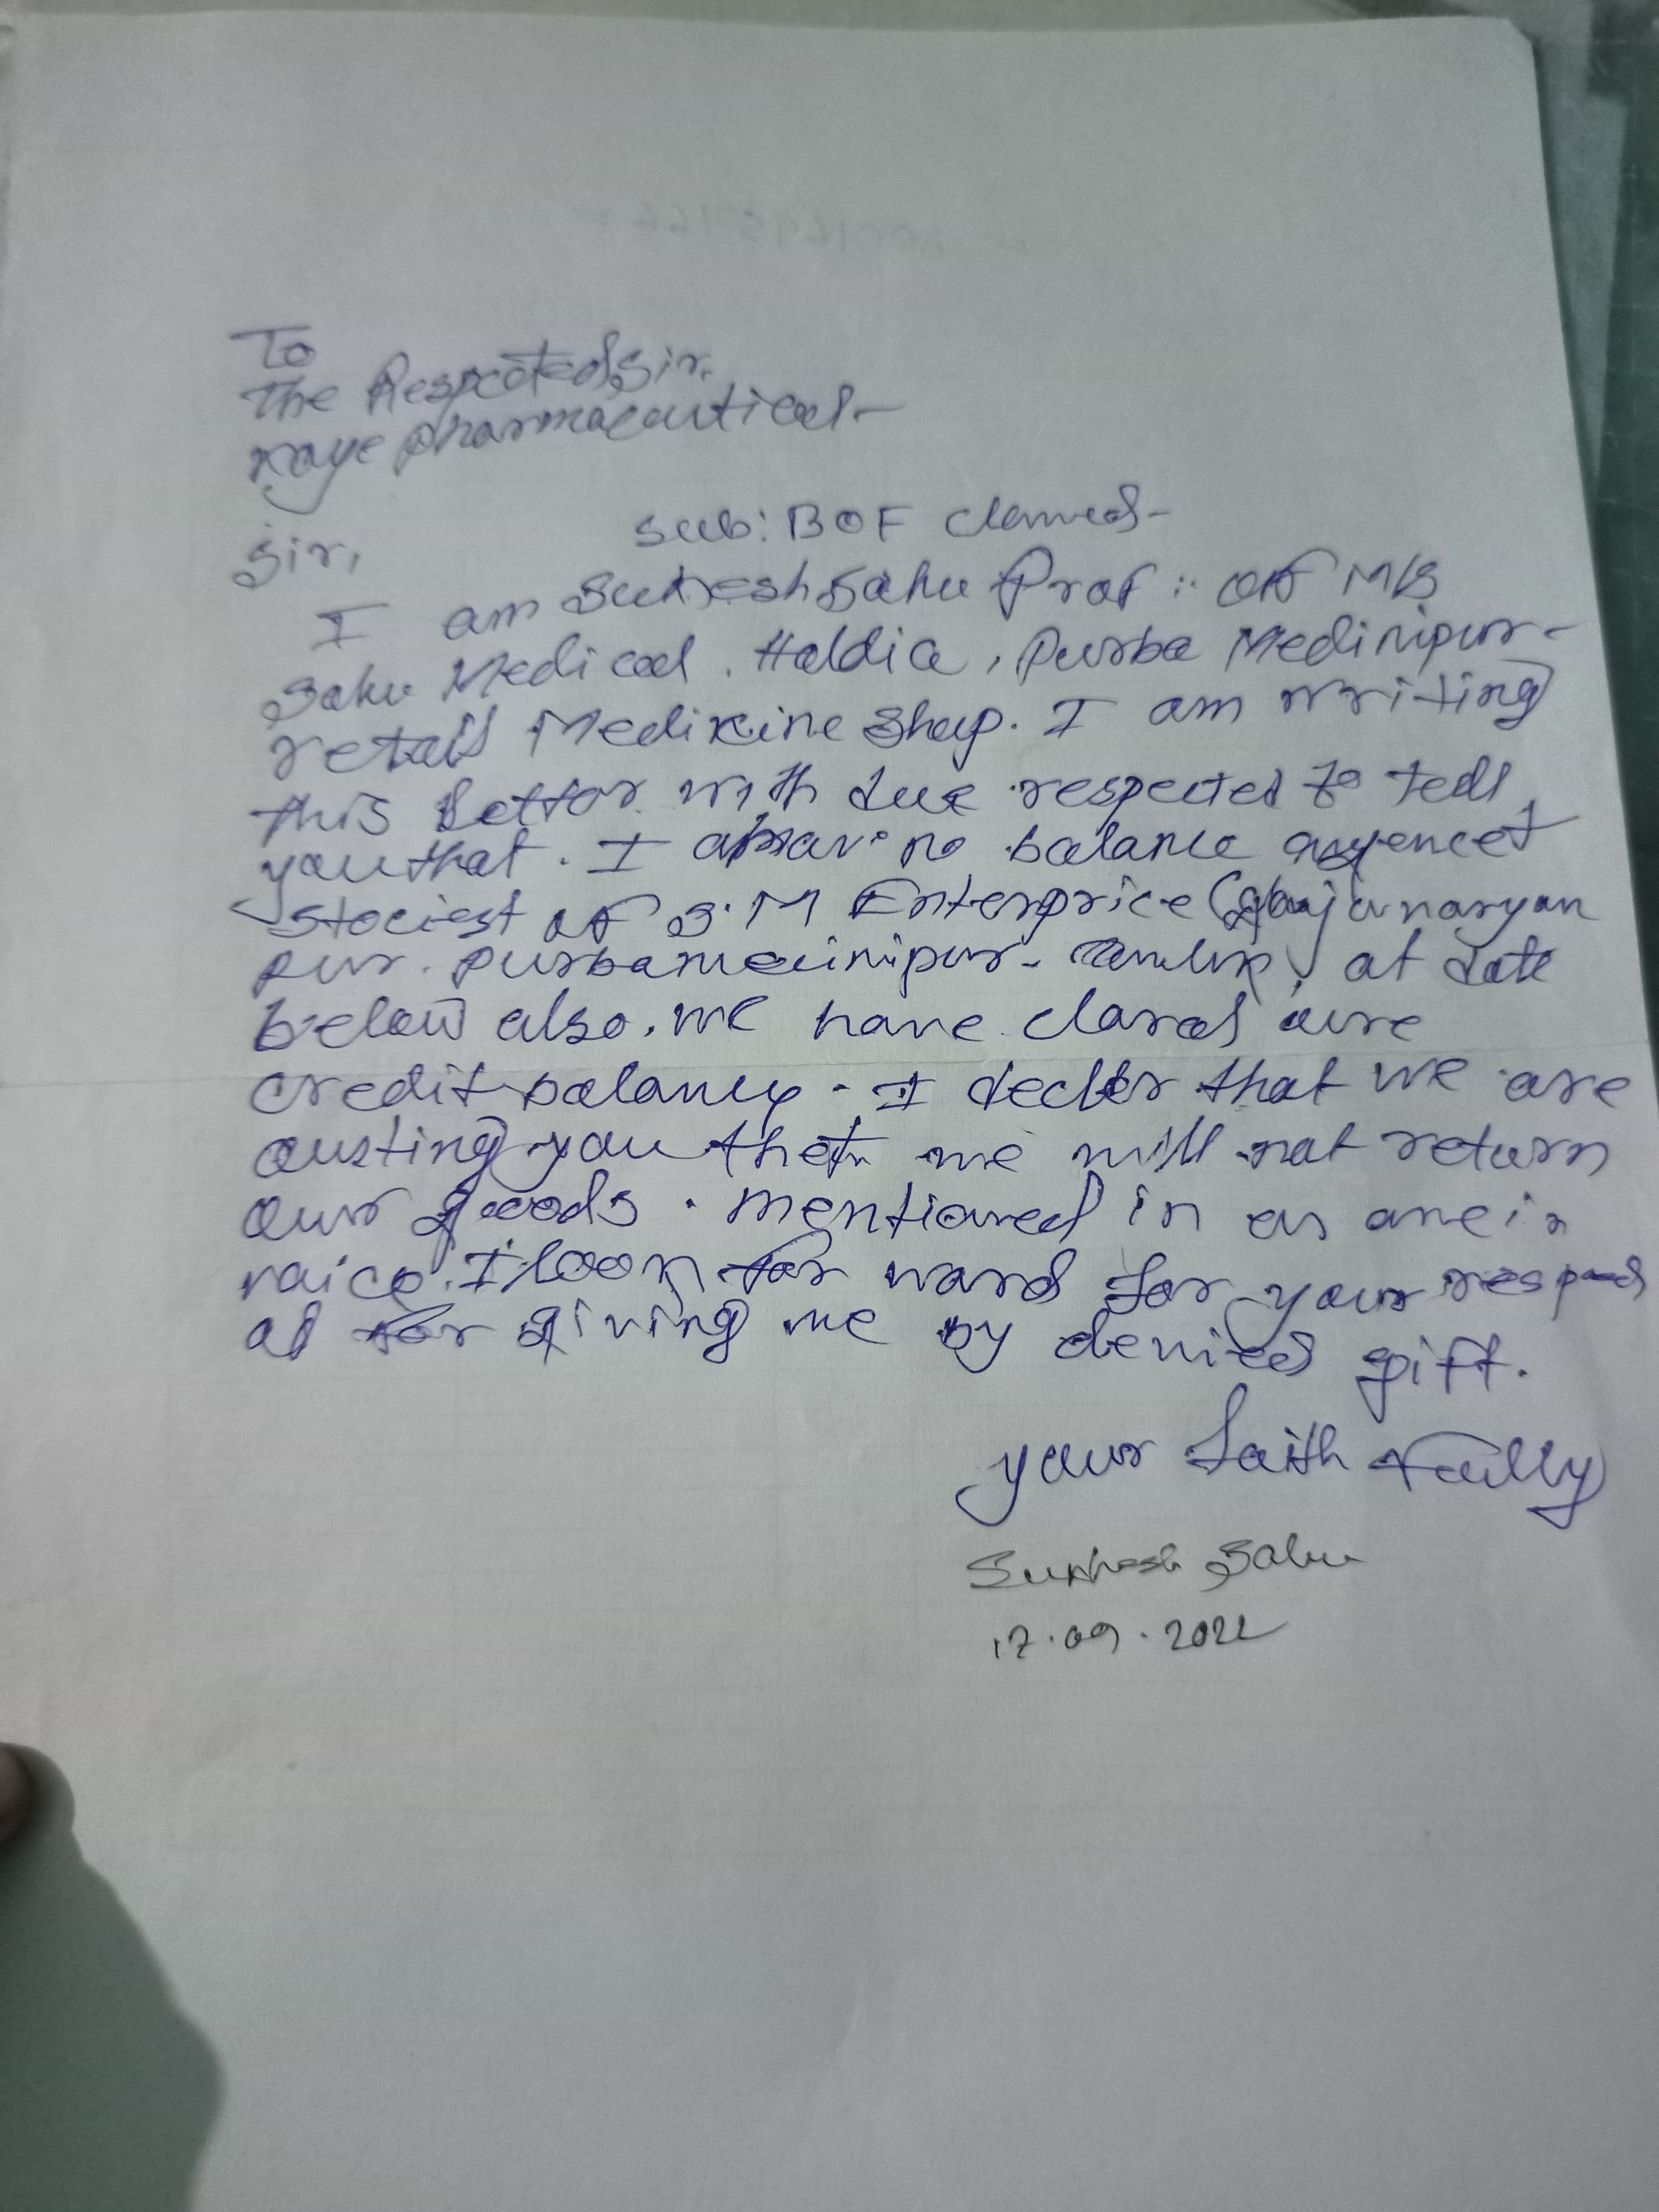 To
The Respected Sir,
Pharmaceutical-
Sub: BOF
Sir,
I am Sukhesh Sahu Prof: of M/S
Sahu Medical. Haldia, Purba Medinipur-
retail Medikine Shop. I am writing
this letter with due respected to tell
you that. I no balance
stociest of S.M Enterprice (Gajanarayan
pur. Purbamedinipur- Tamluk) at date
below also. we have clared oure
credit balance. I that we are
you that we will not return
our goods. mentioned in
I look for ward for your
of for giving me by gift.
your faith fully
Sukhesh Sahu
17.09.2022